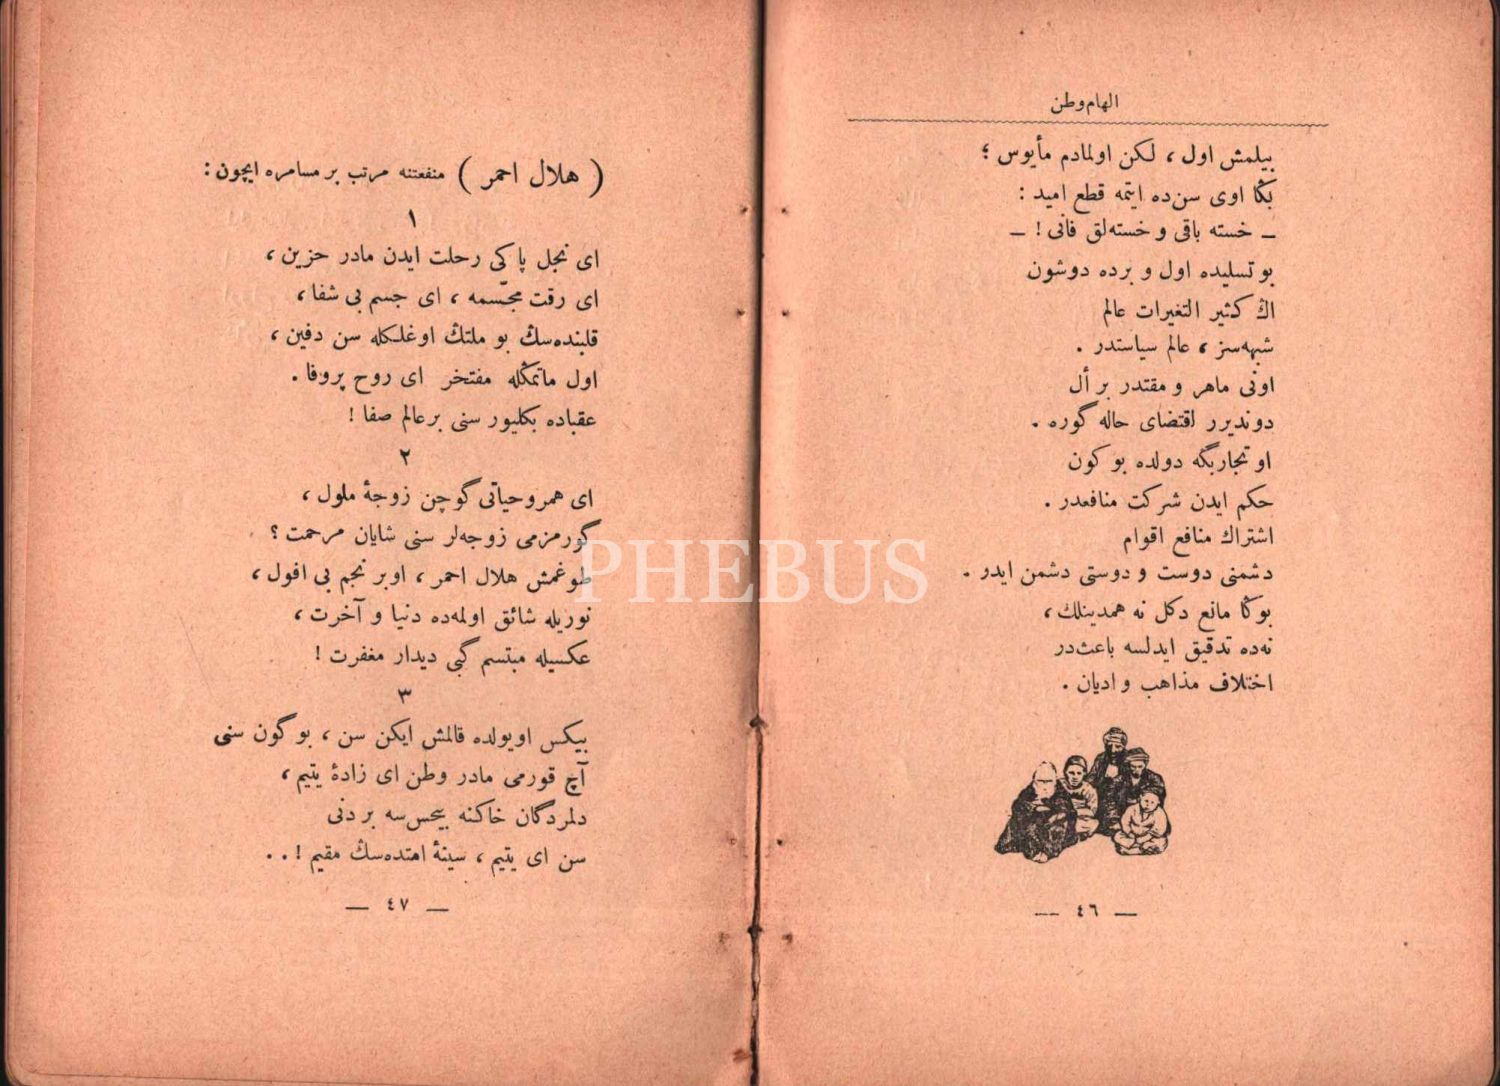 الهام وطن
بیلمش اول ، لکن اولمادم مأیوس ؛
بڭا اوی سن‌ده ایتمه قطع امید :
ــ خسته باقی و خسته‌لق فانی ! ــ
بو تسلیده اول و برده دوشون
اڭ کثیر التغیرات عالم
شبهه‌سز ، عالم سیاستدر .
اونی ماهر و مقتدر بر أل
دوندیرر اقتضای حاله گوره .
او تجاربگه دولده بو کون
حکم ایدن شرکت منافعدر .
اشتراك منافع اقوام
دشمنی دوست و دوستی دشمن ایدر .
بوڭا مانع دکل نه همدینلك ،
نه‌ده تدقیق ایدلسه باعث‌در
اختلاف مذاهب و ادیان .
— ٤٦ —
( هلال احمر ) منفعتنه مرتب بر مسامره ایچون :
١
ای نجل پاکی رحلت ایدن مادر حزین ،
ای رقت مجسّمه ، ای جسم بی شفا ،
قلبنده‌سڭ بو ملتڭ اوغلکله سن دفین ،
اول ماتمڭله مفتخر ای روح پروفا .
عقباده بکلیور سنی بر عالم صفا !
٢
ای همروحیاتی گوچن زوجهٔ ملول ،
گورمزمی زوجه‌لر سنی شایان مرحمت ؟
طوغمش هلال احمر ، اوبر نجم بی افول ،
نوریله شائق اولمه‌ده دنیا و آخرت ،
عکسیله مبتسم گبی دیدار مغفرت !
٣
بیکس اویولده قالمش ایکن سن ، بو گون سنی
آچ قورمی مادر وطن ای زادهٔ یتیم ،
دلمردگان خاکنه بیحس‌سه بر دنی
سن ای یتیم ، سینهٔ امتده‌سڭ مقیم ! . .
— ٤٧ —
PHEBUS